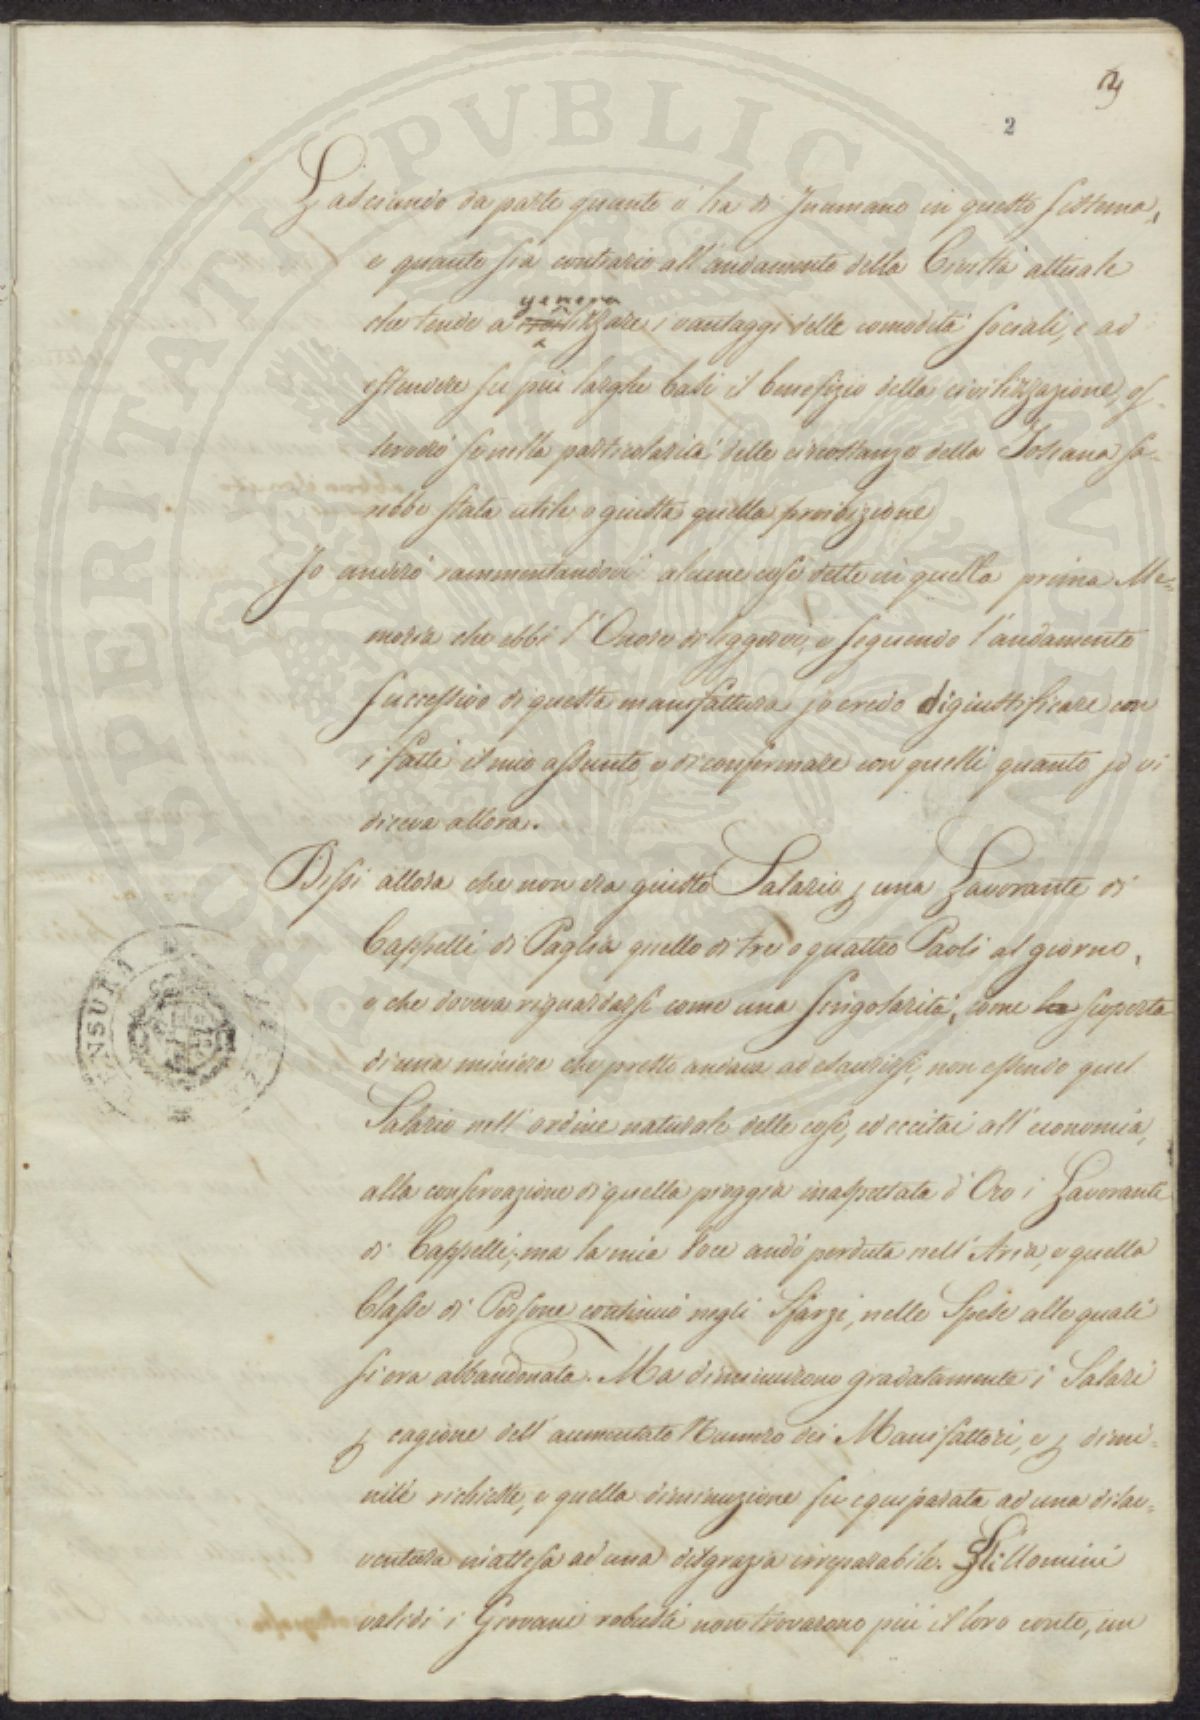 2
2
Lasciando da parte quanto v'ha di Inumano in questo sistema,
e quanto sia contrario all'andamento della Civiltà attuale
che tende a generalizzare i vantaggi delle comodità sociali, e ad
estendere su più larghe basi il benefizio della civilizzazione, os-
serverò se nella particolarità delle circostanze della Toscana sa-
rebbe stata utile e giusta quella proibizione
Io anderò rammentandovi alcune cose dette in quella prima Me-
moria che ebbi l'Onore di leggervi, e seguendo l'andamento
successivo di questa manifattura jo credo di giustificare con
i fatti il mio assunto, e di confermare con quelli quanto jo vi
diceva allora.
Dissi allora che non era giusto Salario p una Lavorante di
Cappelli di Paglia quello di tre o quattro Paoli al giorno,
e che doveva riguardarsi come una singolarità, come la scoperta
di una miniera che presto andava ad esaurirsi, non essendo quel
Salario nell'ordine naturale delle cose, ed eccitai all'economia,
alla conservazione di quella pioggia inaspettata d'Oro i Lavoranti
di Cappelli; ma la mia Voce andò perduta nell'Aria, e quella
Classe di Persone continuò negli Sfarzi, nelle Spese alle quali
si era abbandonata. Ma diminuirono gradatamente i Salari
p cagione dell'aumentato Numero dei Manifattori, e p dimi-
nuite richieste, e quella diminuzione fu equiparata ad una disav-
ventura inattesa ad una disgrazia irreparabile. Gli Uomini
validi i Giovani robusti non trovarono più il loro conto, un
PERITATI PUBLICAE